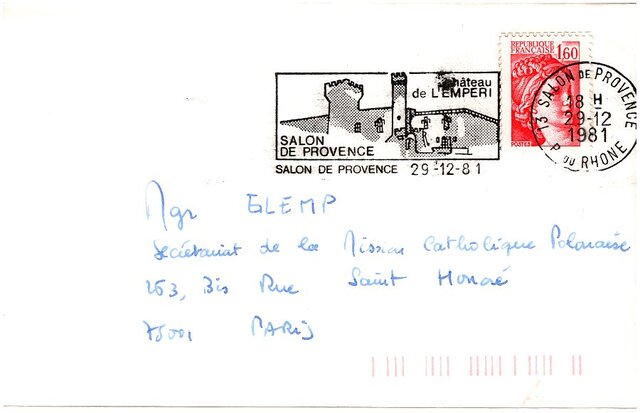 château
de L'EMPERI
SALON
DE PROVENCE
SALON DE PROVENCE 29-12-81
REPUBLIQUE
FRANÇAISE 1,60
POSTES
13 SALON DE PROVENCE
18 H
29-12
1981
P. DU RHONE
Mgr GLEMP
Secrétariat de la Mission Catholique Polonaise
263, Bis Rue Saint Honoré
75001 PARIS